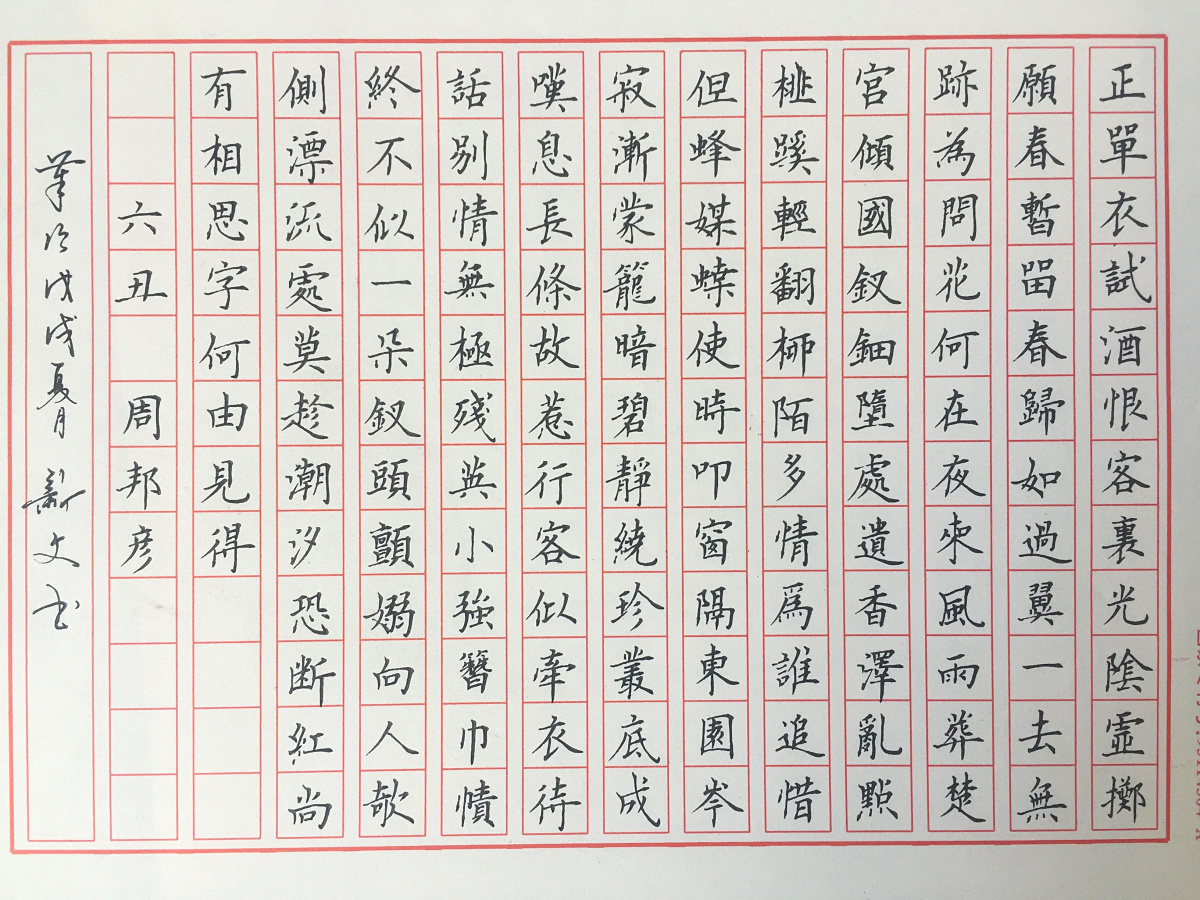 正單衣試酒恨客裏光陰虛擲
願春暫留春歸如過翼一去無
跡為問花何在夜來風雨葬楚
宮傾國釵鈿墮處遺香澤亂點
桃蹊輕翻柳陌多情爲誰追惜
但蜂媒蝶使時叩窗隔東園岑
寂漸蒙籠暗碧靜繞珍叢底成
嘆息長條故惹行客似牽衣待
話別情無極殘英小強簪巾幘
終不似一朵釵頭顫嫋向人欹
側漂流處莫趁潮汐恐断紅尚
有相思字何由見得
六丑 周邦彦
戊戌夏月 新文书